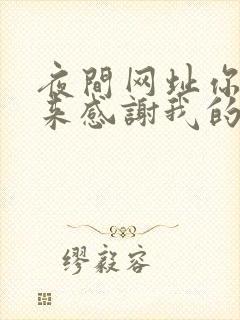 夜間网址你
来感謝我的
缪毅容